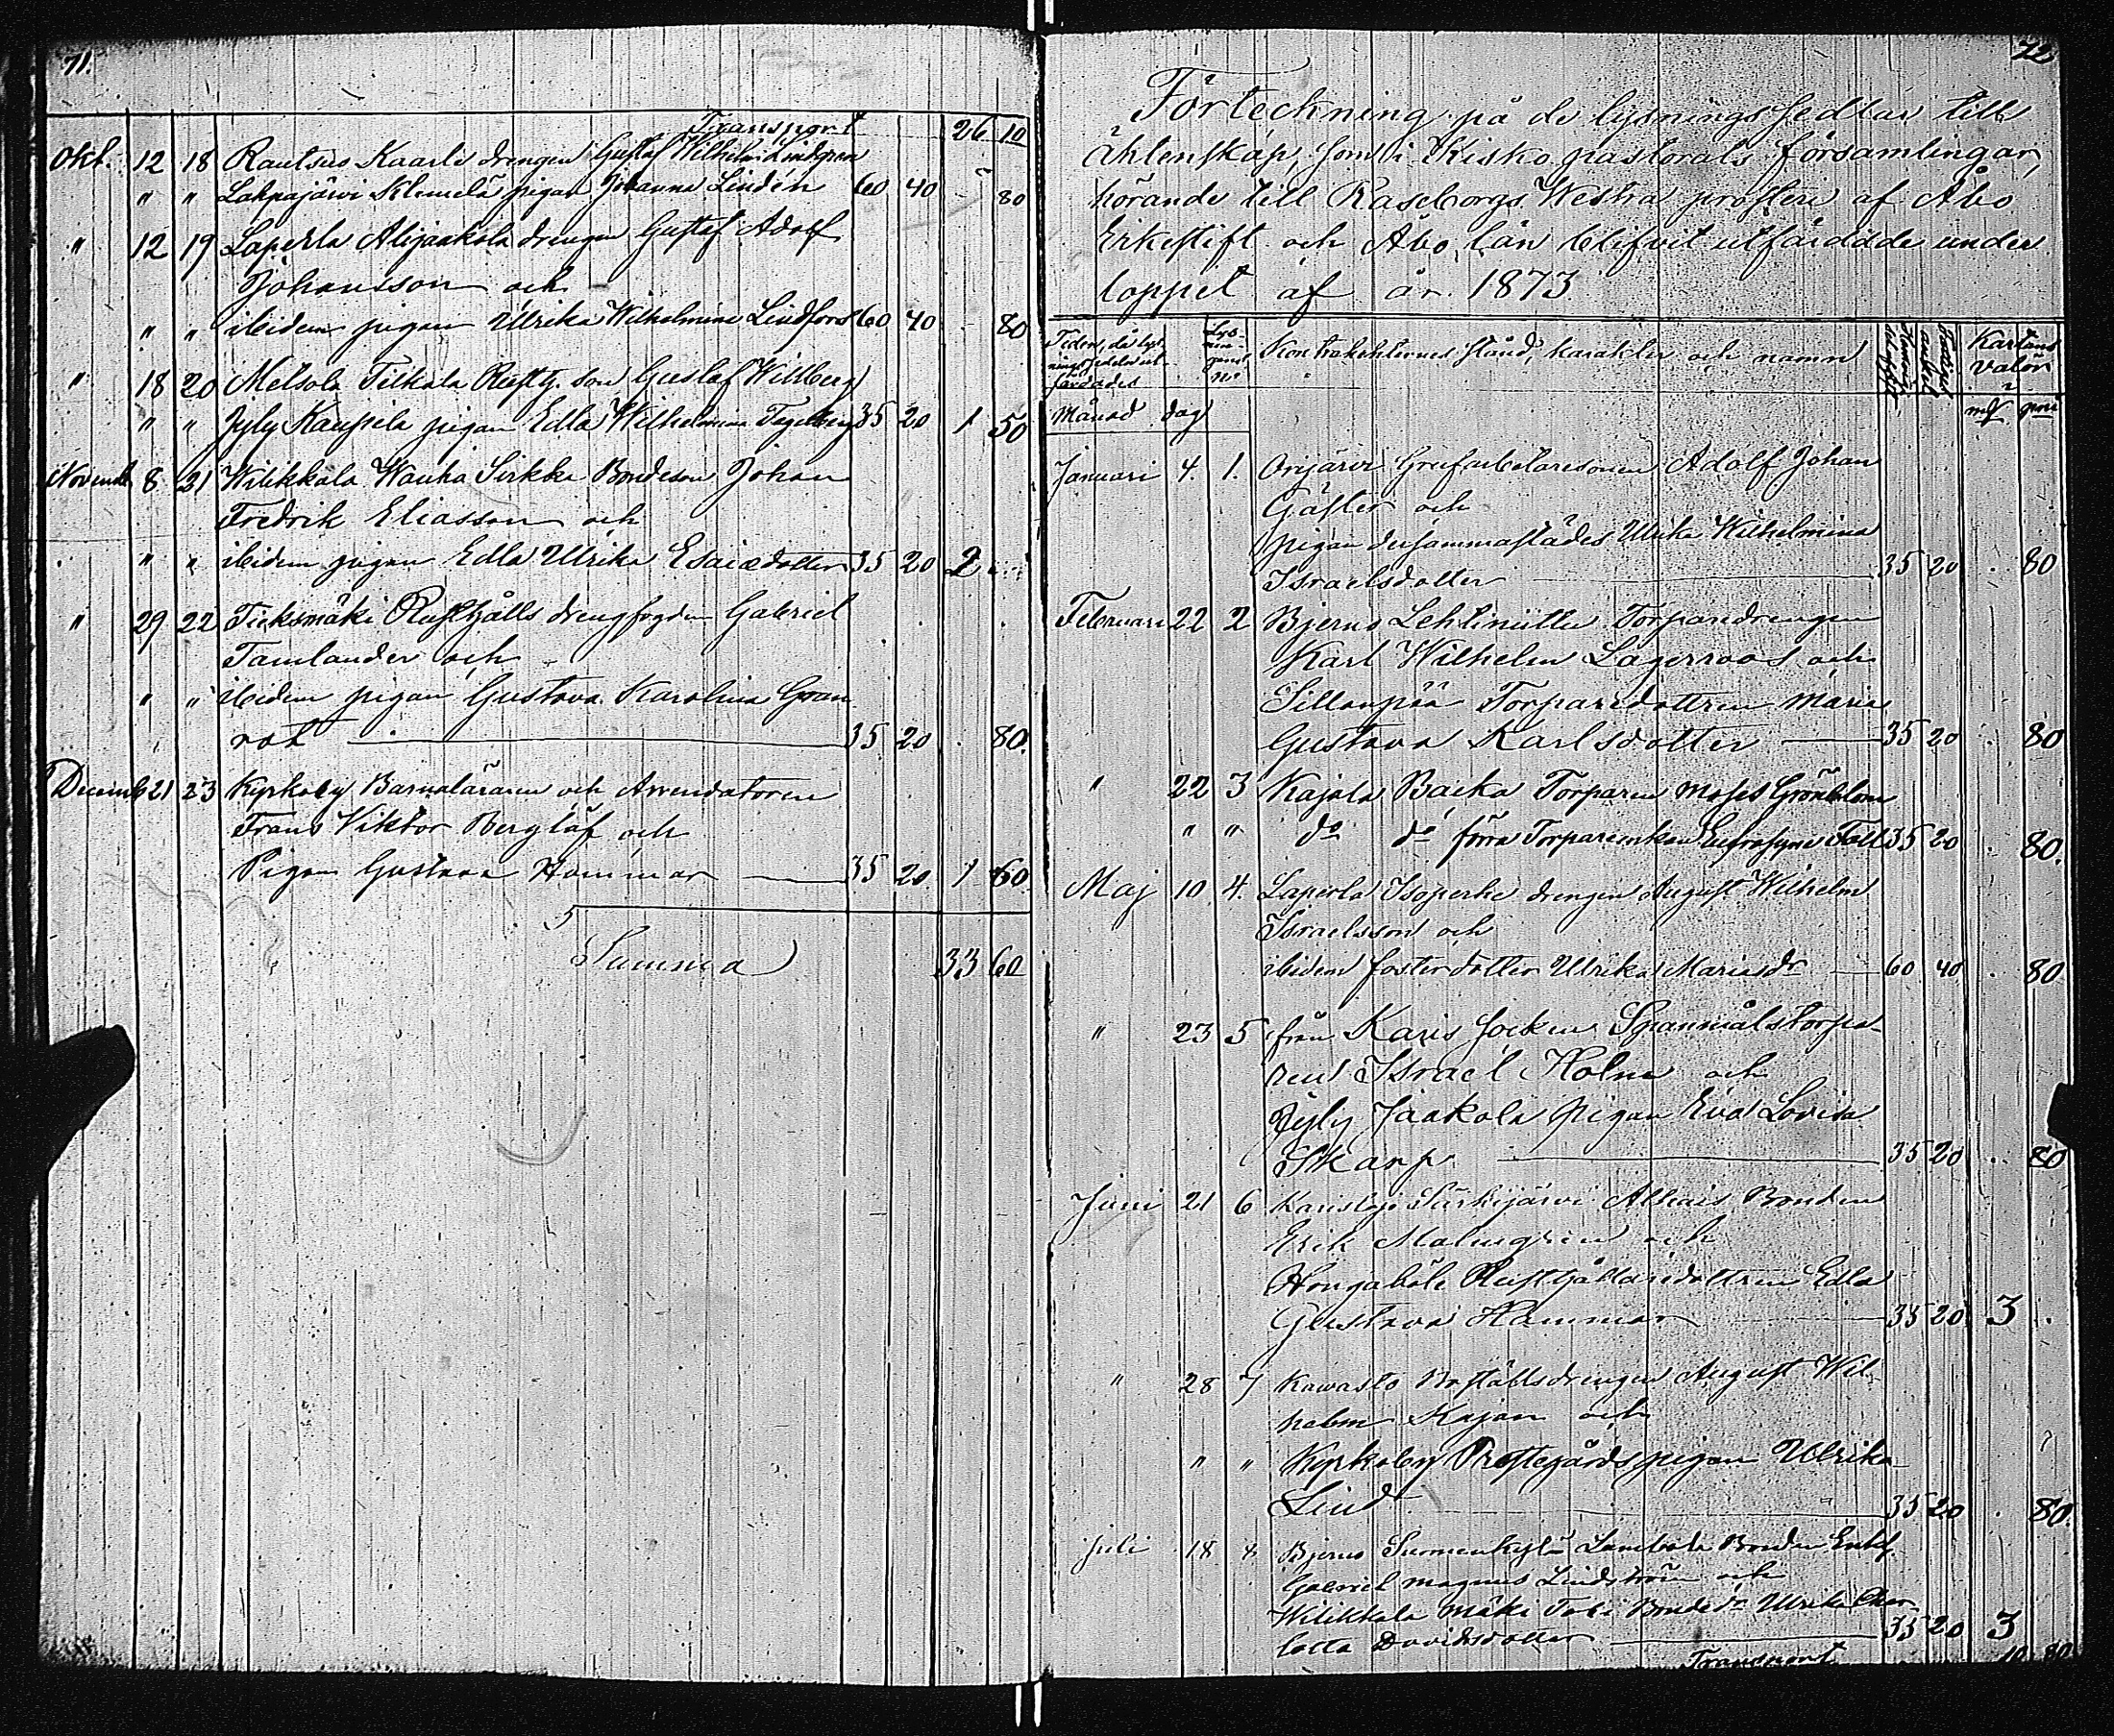 71.
Transport 26 10
Okt. 12 18 Rautsuo Kaarle drengen Gustaf Wilhelm Lindgren
" " Lahnajärvi Klemelä pigan Johanna Lindén 60 40 - 80
" 12 19 Laperla Alijaakola drengen Gustaf Adolf
Johansson och
" " ibidem pigan Ulrika Wilhelmina Lindfors 60 40 - 80
" 18 20 Metsola Tilkala Rusth. son Gustaf Willberg
" " Jyly Kaupila pigan Edla Wilhelmina Tegelberg 35 20 1 50
Novemb 8 21 Wilikkala Wanha Sirkka Bondeson Johan
Fredrik Eliasson och
" " ibidem pigan Edla Ulrika Esaiædotter 35 20 2
" 29 22 Tieksmäki Rusthålls drengfogden Gabriel
Tamlander och
" " ibidem pigan Gustava Karolina Gran
rot 35 20 . 80.
Decemb 21 23 Kyrkoby Barnaläraren och Arrendatoren
Frans Viktor Bergläf och
Pigan Gustava Hammar 35 20 1 60
Summa 33 60
72
Förteckning på de lysningssedlar till
äktenskap, som i Kisko pastorats församlingar,
hörande till Raseborgs Westra prosteri af Åbo
Erkestift och Åbo län blifvit utfärdade under
loppet af år 1873
Tiden, då lys-
ningssedeln ut-
färdades
Lys-
nin-
gens
No
Kontrahenternes stånd, karakter och namn
Kartans
valör
Månad dag
mk pni
Januari 4. 1. Orijärvi Grufarbetaresonen Adolf Johan
Gäster och
pigan dersammastädes Ulrika Wilhelmina
Israelsdotter 35 20 . 80
Februari 22 2 Bjerno Lehtiniittu Torparedrengen
Karl Wilhelm Lagerroos och
Sillanpää Torparedottren Maria
Gustava Karlsdotter 35 20 . 80
" 22 3 Kajala Backa Torparen Moses Grönblom
" " do do förra Torpareenkan Eufrosyne Fall 35 20 . 80.
Maj 10 4. Laperla Isoperhe drengen August Wilhelm
Israelsson och
ibidem fosterdotter Ulrika Mariasdr 60 40 . 80
" 23 5 från Karis Socken Spanmålstorpa-
ren Israel Holm och
Jyly Jaakola pigan Eva Lovisa
Skarp 35 20 . 80
Juni 21 6 Karislojo Särkijärvi Bonden
Erik Malmgren och
Hongaböle Rusthållaredottren Edla
Gustava Hammar 35 20 3 .
" 28 7 Kawasto Boställsdrengen August Wil-
helm Kajan och
" " Kyrkoby Prestegårdspigan Ulrika
Lind 35 20 . 80.
Juli 18 8 Bjerno Lambola Bonden Enkl.
Gabriel Magnus Lindström och
Wilikkala Mäki Tobi Bondedr Ulrika Char-
lotta Davidsdotter 35 20 3
Transport 10 80